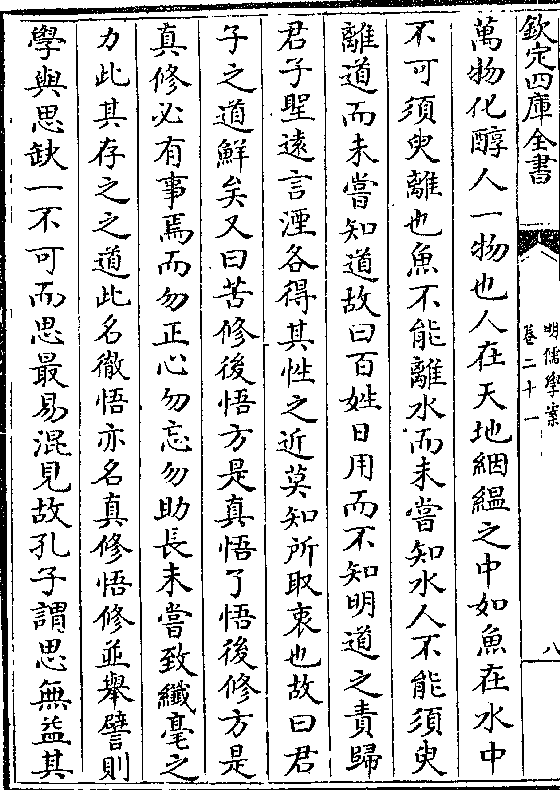 欽定四庫全書
明儒學案
卷二十一
八
萬物化醇人一物也人在天地絪緼之中如魚在水中
不可須臾離也魚不能離水而未嘗知水人不能須臾
離道而未嘗知道故曰百姓日用而不知明道之責歸
君子聖遠言湮各得其性之近莫知所取衷也故曰君
子之道鮮矣又曰苦修後悟方是真悟了悟後修方是
真修必有事焉而勿正心勿忘勿助長未嘗致纎毫之
力此其存之之道此名徹悟亦名真修悟修並舉譬則
學與思缺一不可而思最易混見故孔子謂思無益其